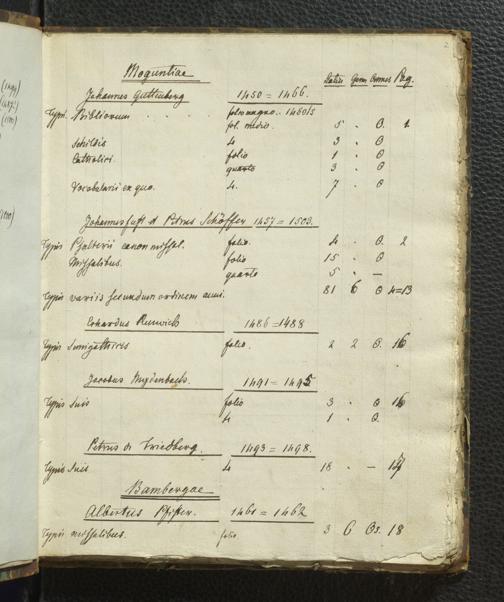 2
Moguntiae
Latin Germ Omnes Pag.
Johannes Guttenberg 1450 = 1466.
Typis. Bibliorum folio magno. 1450/5
fol. medio. 5 . O. 1
Schildis 4 3 . O
Catholici. folio 1 . O
quarto 3 . O
Vocabularii ex quo. 4. 7 . O
Johannes fust et Petrus Schöffer 1457 = 1503.
Typis Psalterii canon missal. folio. 4 . O. 2
Missalibus. folio 15 . O
quarto 5 . —
Typis variis secundum ordinem anni. 81 6 O 4=13
Erhardus Reuwich 1486 = 1488
Typis folio. 2 2 O. 16
Jacobus Meydenbach. 1491 = 1495
Typis suis folio 3 . O 16
4 1 . O.
Petrus de Friedberg. 1493 = 1498.
Typis suis 4 18 . — 17
Bambergae
Albertus Pfister. 1461 = 1462
Typis missalibus. folio 3 6 Os. 18